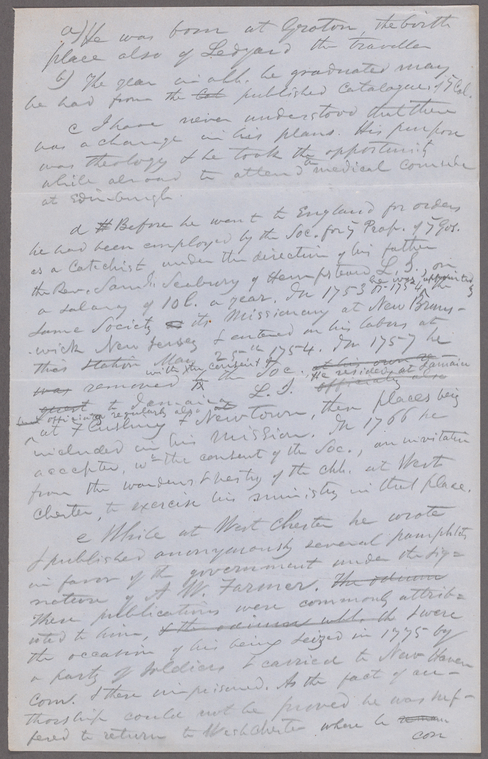 a) He was born at Groton, the birth
place also of Ledyard the traveller
b) The year in wh. he graduated may
be had from the Cat published Catalogue of Y Col.
c I have never understood that there
was a change in his plans. His purpose
was theology & he took the opportunity
while abroad to attend the medical course
at Edinburgh
d Before he went to England for orders
he had been employed by the Soc. for Y Prop. of Y Gos.
as a Catechist under the direction of his father
the Rev. Saml. Seabury of Hempstead, L. I., on
a salary of 10 l. a year. In 1753 he was appointed by the
same Society its Missionary at New Bruns-
wick New Jersey & entered on his labors at
this station May 25th 1754. In 1757 he
was removed with the consent of the Soc.
to Jamaica L. I. He resided at Jamaica
officiating regularly also
at Flushing & Newtown, these places being
included in his mission. In 1766 he
accepted, wth the consent of the Soc., an invitation
from the wardens & vestry of the chh. at West
Chester, to exercise his ministry in that place.
e While at West Chester he wrote
& published anonymously several pamphlets
in favor of the government under the sig-
nature of A W. Farmer. The odium
These publications were commonly attrib-
uted to him, & the odium & were
the occasion of his being seized in 1775 by
a party of soldiers & carried to New Haven
Conn. & there imprisoned. As the fact of au-
thorship could not be proved he was suf-
fered to return to WestChester where he
con